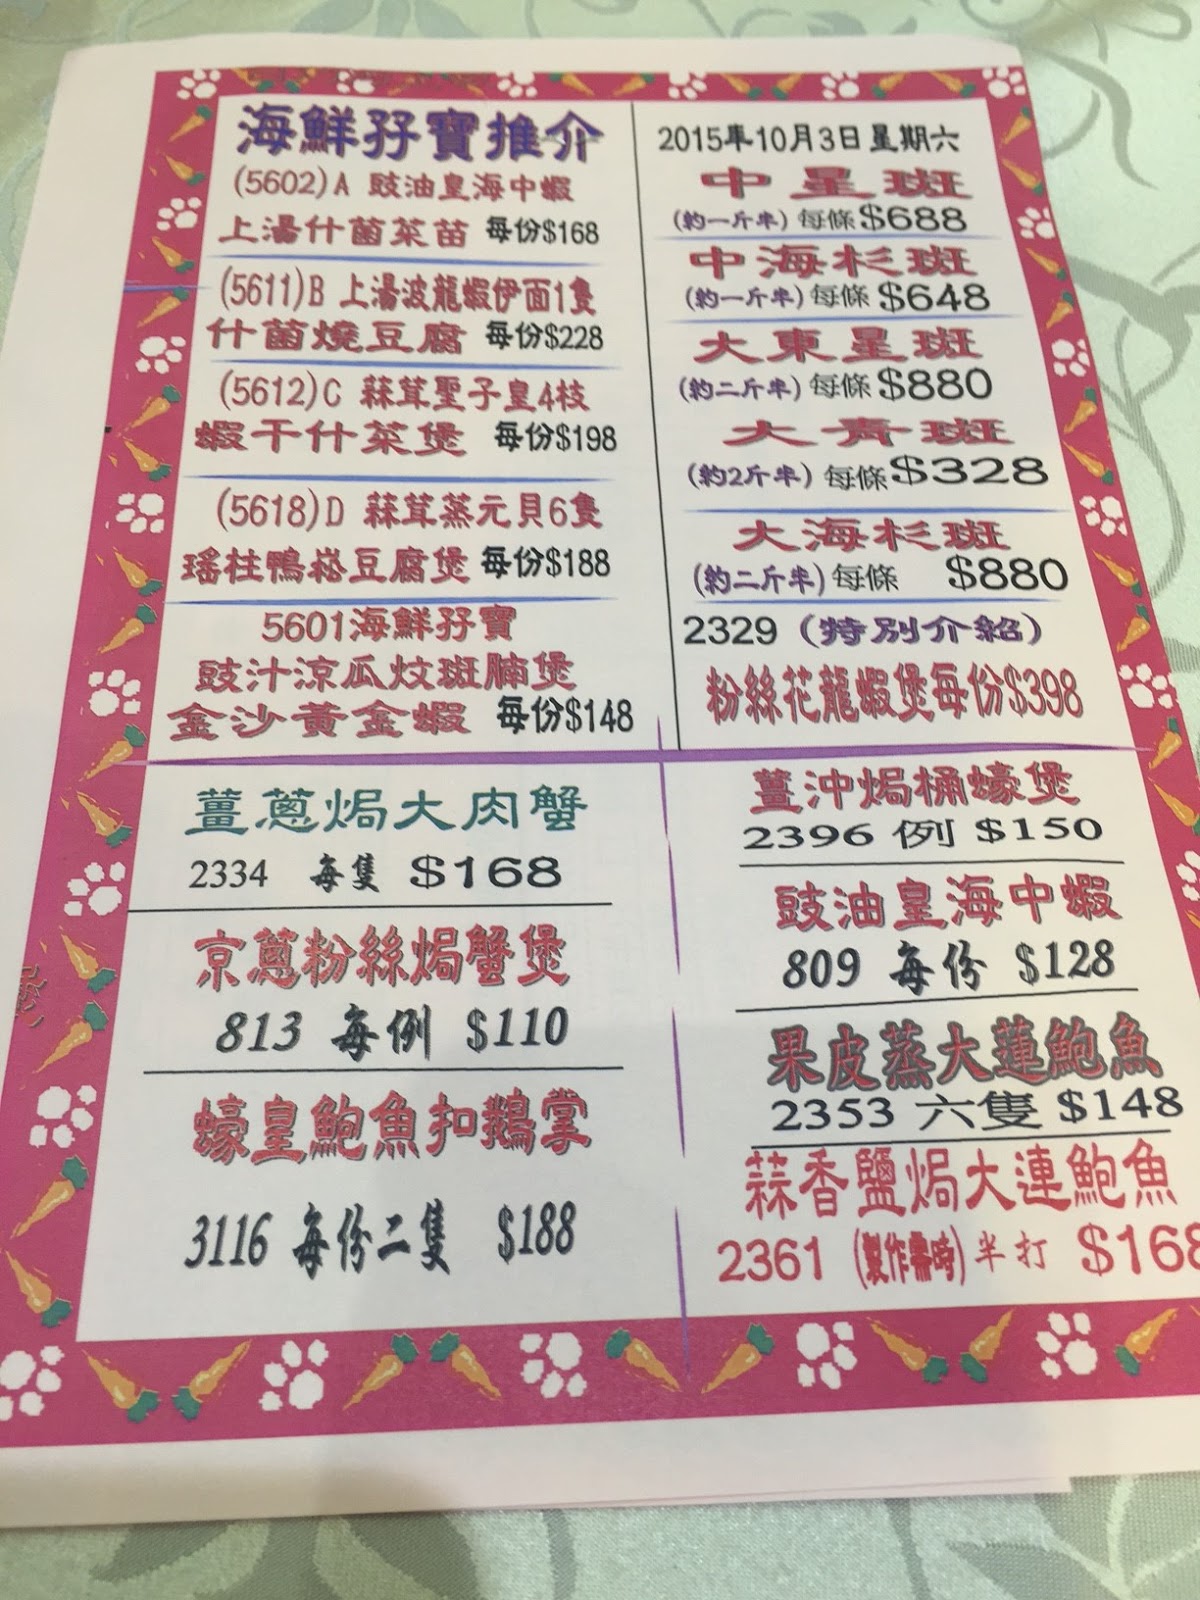 海鮮孖寶推介
(5602)A 豉油皇海中蝦
上湯什菌菜苗 每份$168
(5611)B 上湯波龍蝦伊面1隻
什菌燒豆腐 每份$228
(5612)C 蒜茸聖子皇4枝
蝦干什菜煲 每份$198
(5618)D 蒜茸蒸元貝6隻
瑤柱鴨崧豆腐煲 每份$188
5601海鮮孖寶
豉汁涼瓜炆斑腩煲
金沙黃金蝦 每份$148
2015年10月3日星期六
中星斑
(約一斤半) 每條$688
中海杉斑
(約一斤半) 每條$648
大東星斑
(約二斤半) 每條$880
大青斑
(約2斤半) 每條$328
大海杉斑
(約二斤半) 每條 $880
2329 (特別介紹)
粉絲花龍蝦煲每份$398
薑蔥焗大肉蟹
2334 每隻 $168
京蔥粉絲焗蟹煲
813 每例 $110
蠔皇鮑魚扣鵝掌
3116 每份二隻 $188
薑沖焗桶蠔煲
2396 例 $150
豉油皇海中蝦
809 每份 $128
果皮蒸大蓮鮑魚
2353 六隻 $148
蒜香鹽焗大連鮑魚
2361 (製作需時) 半打 $168